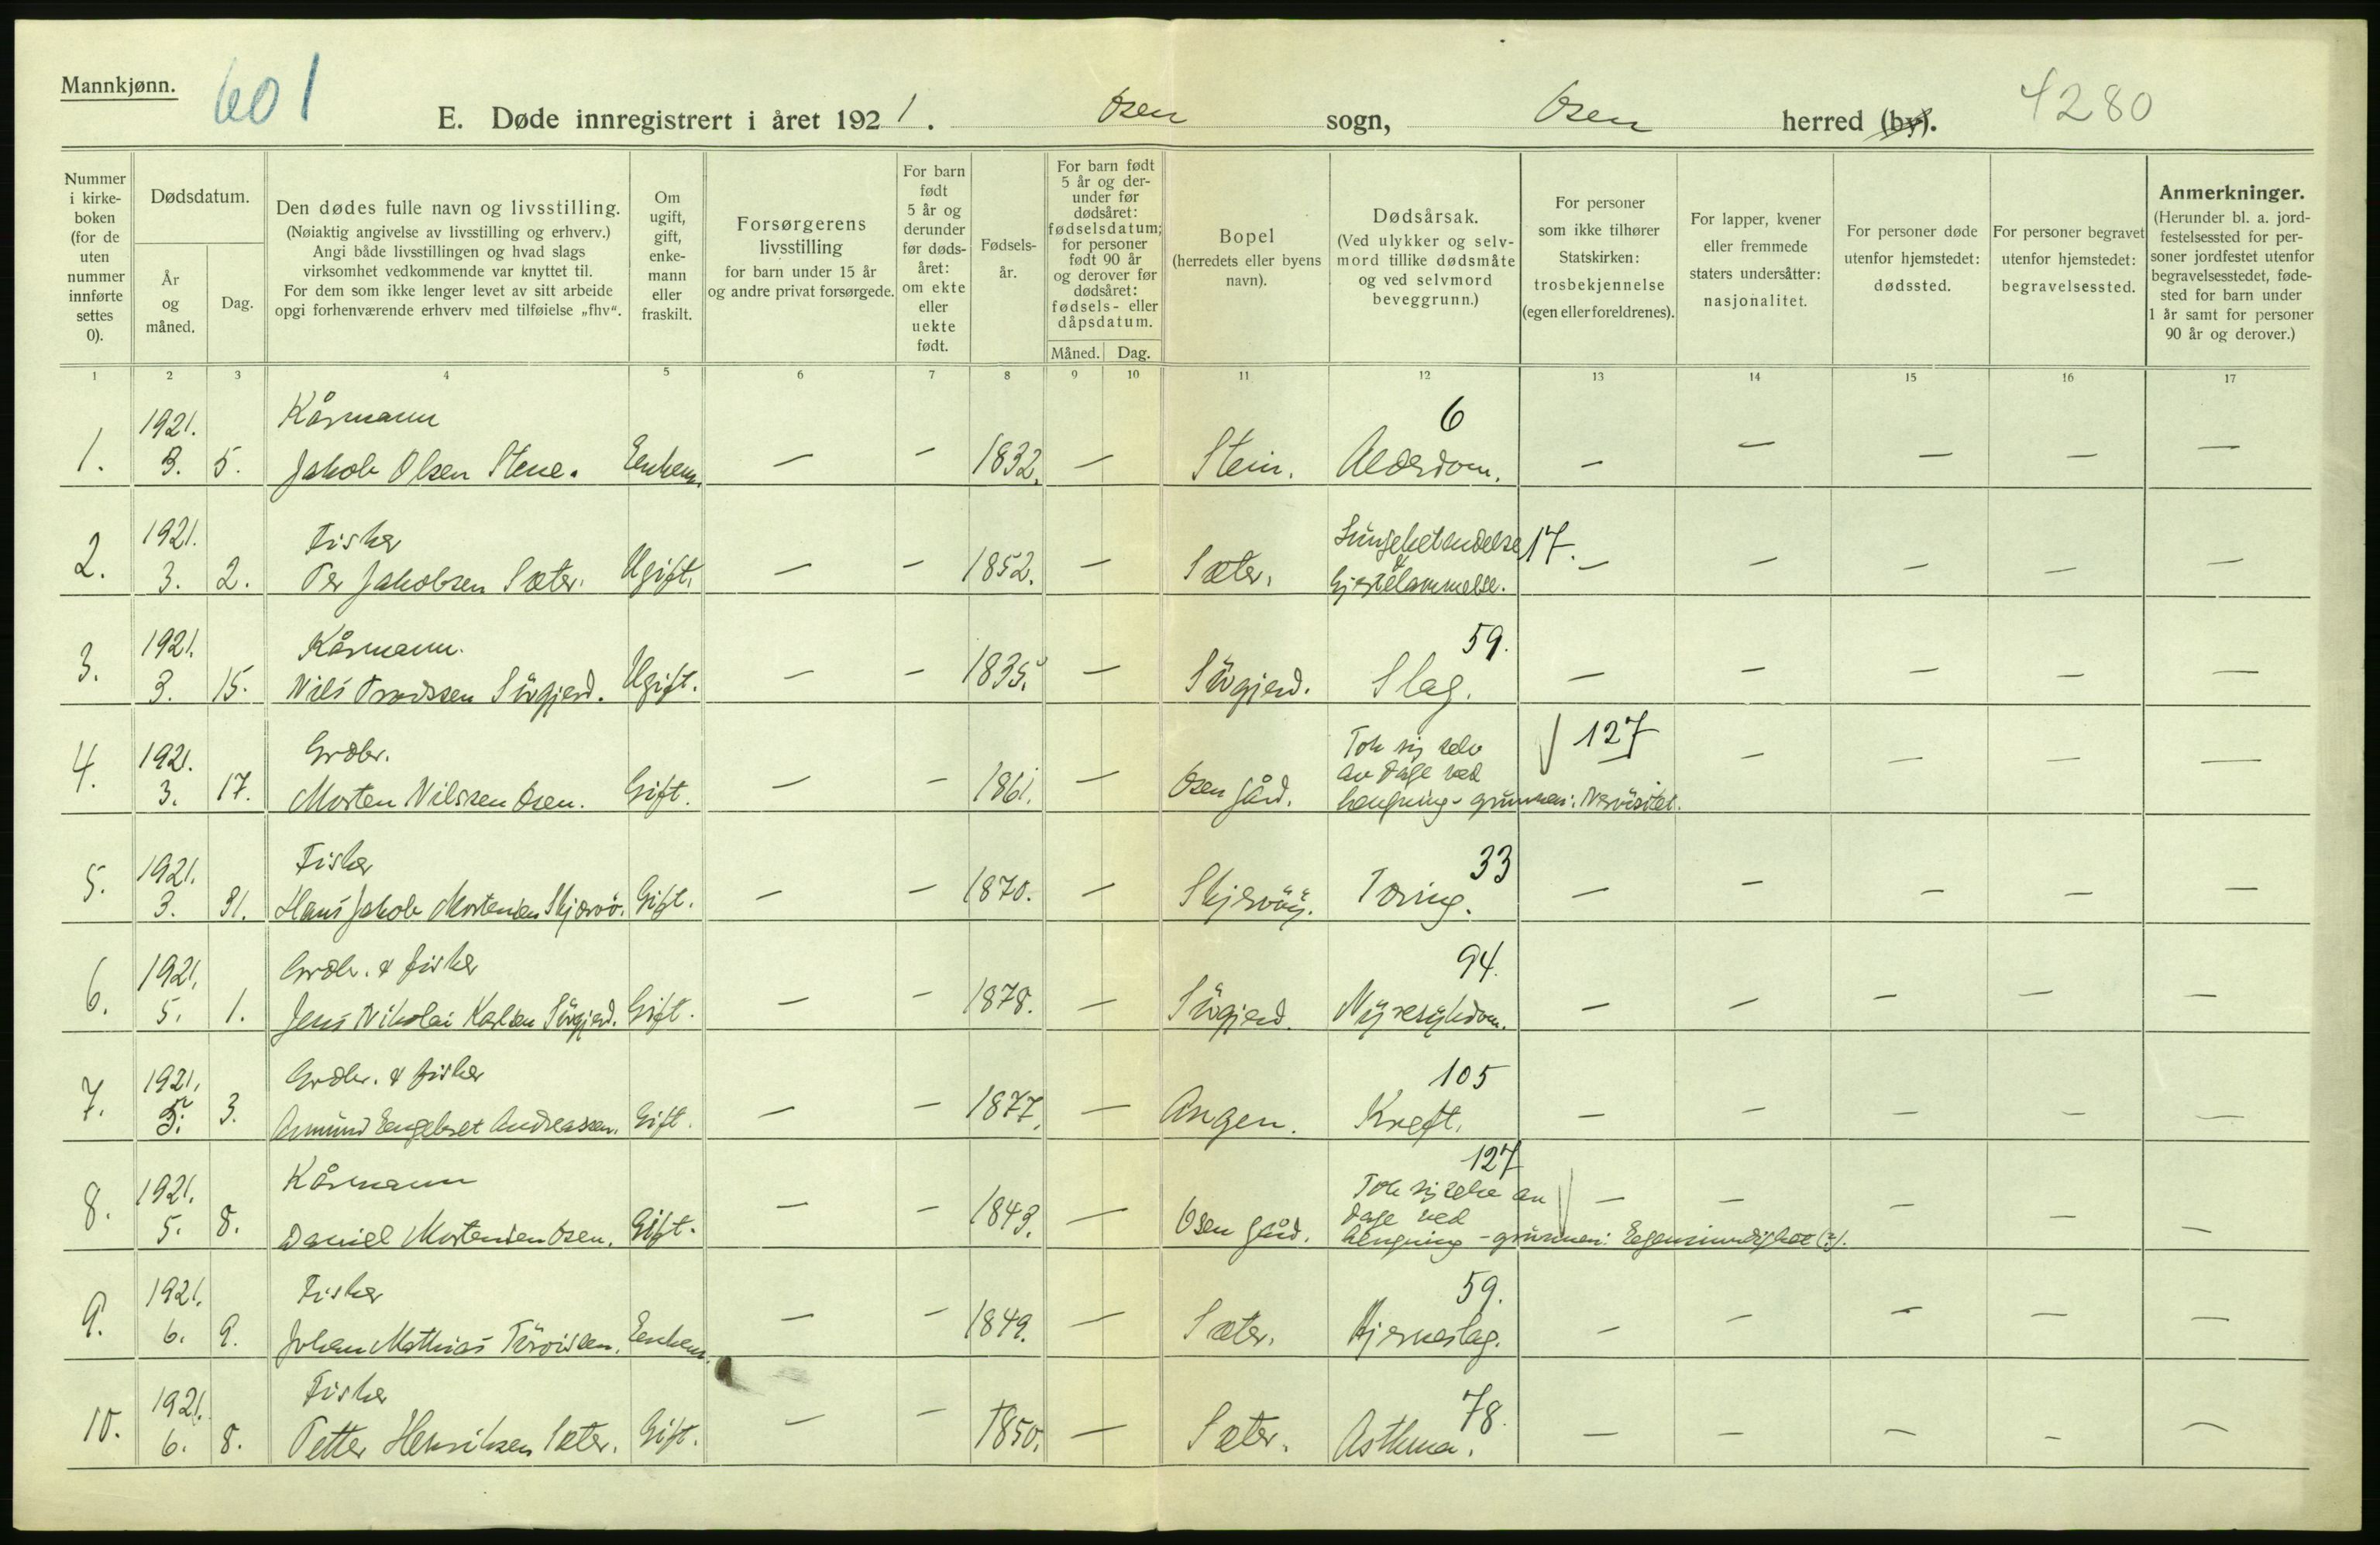 Mannkjønn.
601
E. Døde innregistrert i året 1921. Osen sogn, Osen herred (by).
4280
Nummer i kirke-boken (for de uten nummer innførte settes 0).
Dødsdatum.
År og måned.
Dag.
Den dødes fulle navn og livsstilling.
(Nøiaktig angivelse av livsstilling og erhverv.)
Angi både livsstillingen og hvad slags
virksomhet vedkommende var knyttet til.
For dem som ikke lenger levet av sitt arbeide
opgi forhenværende erhverv med tilføielse „fhv“.
Om ugift, gift, enke-mann eller fraskilt.
Forsørgerens livsstilling
for barn under 15 år
og andre privat forsørgede.
For barn født 5 år og derunder før døds-året: om ekte eller uekte født.
Fødsels-år.
For barn født 5 år og der-under før dødsåret: fødselsdatum; for personer født 90 år og derover før dødsåret: fødsels- eller dåpsdatum.
Måned. Dag.
Bopel
(herredets eller byens navn).
Dødsårsak.
(Ved ulykker og selv-mord tillike dødsmåte og ved selvmord beveggrunn.)
For personer som ikke tilhører Statskirken: trosbekjennelse (egen eller foreldrenes).
For lapper, kvener eller fremmede staters undersåtter: nasjonalitet.
For personer døde utenfor hjemstedet: dødssted.
For personer begravet utenfor hjemstedet: begravelsessted.
Anmerkninger.
(Herunder bl. a. jord-festelsessted for per-soner jordfestet utenfor begravelsesstedet, føde-sted for barn under 1 år samt for personer 90 år og derover.)
1 2 3 4 5 6 7 8 9 10 11 12 13 14 15 16 17
1921. Kårmann 6
1. 3. 5. Jakob Olsen Stene. Enkem. — — 1832. — Stein. Alderdom. — — — — —
1921. Fisker Lungebetendelse 17.
2. 3. 2. Per Jakobsen Sæter. Ugift. — — 1852. — Sæter. & Hjertelammelse. — — — — —
1921. Kårmann. 59.
3. 3. 15. Nils Sørgjerd. Ugift. — — 1835. — Sørgjerd. Slag. — — — — —
1921. Grdbr. Tok sig selv 127
4. av dage ved
3. 17. Morten Nilssen Osen. Gift. — — 1861. — Osen gård. hengning - grunnen: Nervøsitet. — — — — —
1921. Fisker 33
5. 3. 31. Hans Jakob Mortensen Skjærvø. Gift. — — 1870. — Skjervøy. Tæring. — — — — —
1921. Grdbr. & fisker 94.
6. 5. 1. Jens Nikolai Karlsen Sørgjerd. Gift. — — 1878. — Sørgjerd. Nyresykdom. — — — — —
1921. Grdbr. & fisker 105
7. 5. 3. Amund Engelbret Andreassen. Gift. — — 1877. — Angen. Kreft. — — — — —
1921. Kårmann 127
8. Tok sig selv av
dage ved
5. 8. Daniel Mortensen Osen. Gift. — — 1843. — Osen gård. hengning - grunnen: Egensindighet (?). — — — — —
1921. Fisker 59.
9. 6. 9. Johan Mathias Enkem. — — 1849. — Sæter. Hjerneslag. — — — — —
1921. Fisker 78.
10. 6. 8. Petter Henriksen Sæter. Gift. — — 1850. — Sæter. Asthma. — — — — —